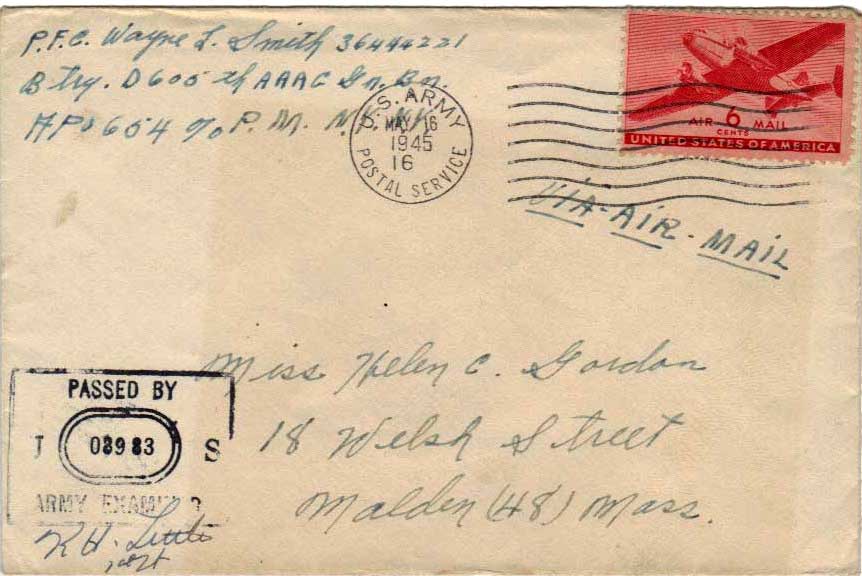 P.F.C. Wayne L. Smith 36444221
Btry. D 605th AAAG Gn. Bn.
APO 654 % P.M. N.Y.
U.S. ARMY
MAY 16
1945
16
POSTAL SERVICE
AIR 6 MAIL
CENTS
UNITED STATES OF AMERICA
VIA-AIR-MAIL
Miss Helen C. Gordon
18 Welsh Street
Malden (48) Mass.
PASSED BY
08983
S
ARMY EXAMINER